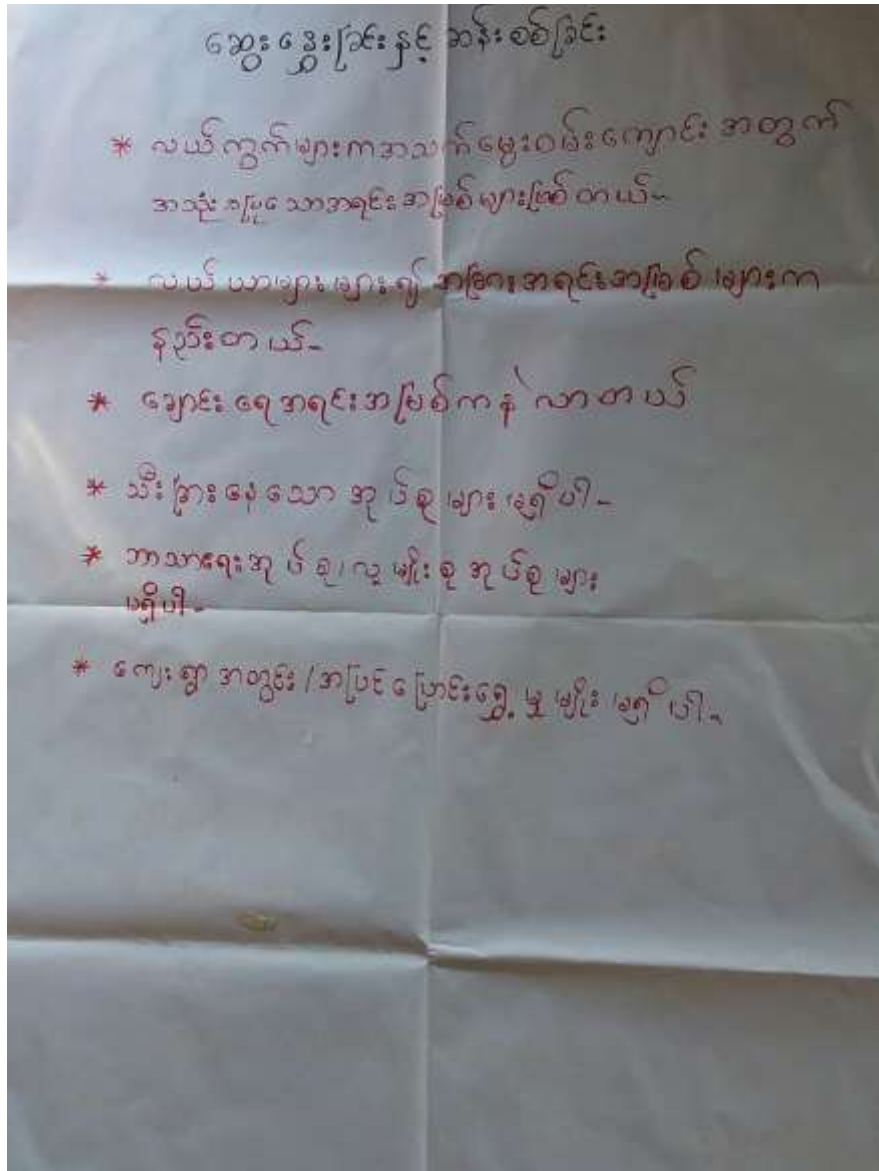 ဆွေးနွေးခြင်းနှင့် ဆန်းစစ်ခြင်း
* လယ်ကွက်များကအသက်မွေးဝမ်းကျောင်း အတွက်
အသုံးပြုသောအရင်းအမြစ်များဖြစ်တယ်-
* လယ်ယာများများ၍ အခြားအရင်းအမြစ်များက
နည်းတယ်-
* ချောင်းရေအရင်းအမြစ်ကနဲလာတယ်
* သီးခြားနေသောအုပ်စုများမရှိပါ-
* ဘာသာရေးအုပ်စု၊လူမျိုးစုအုပ်စုများ
မရှိပါ-
* ကျေးရွာအတွင်း/အပြင်ပြောင်းရွှေ့မှုမျိုးမရှိပါ-